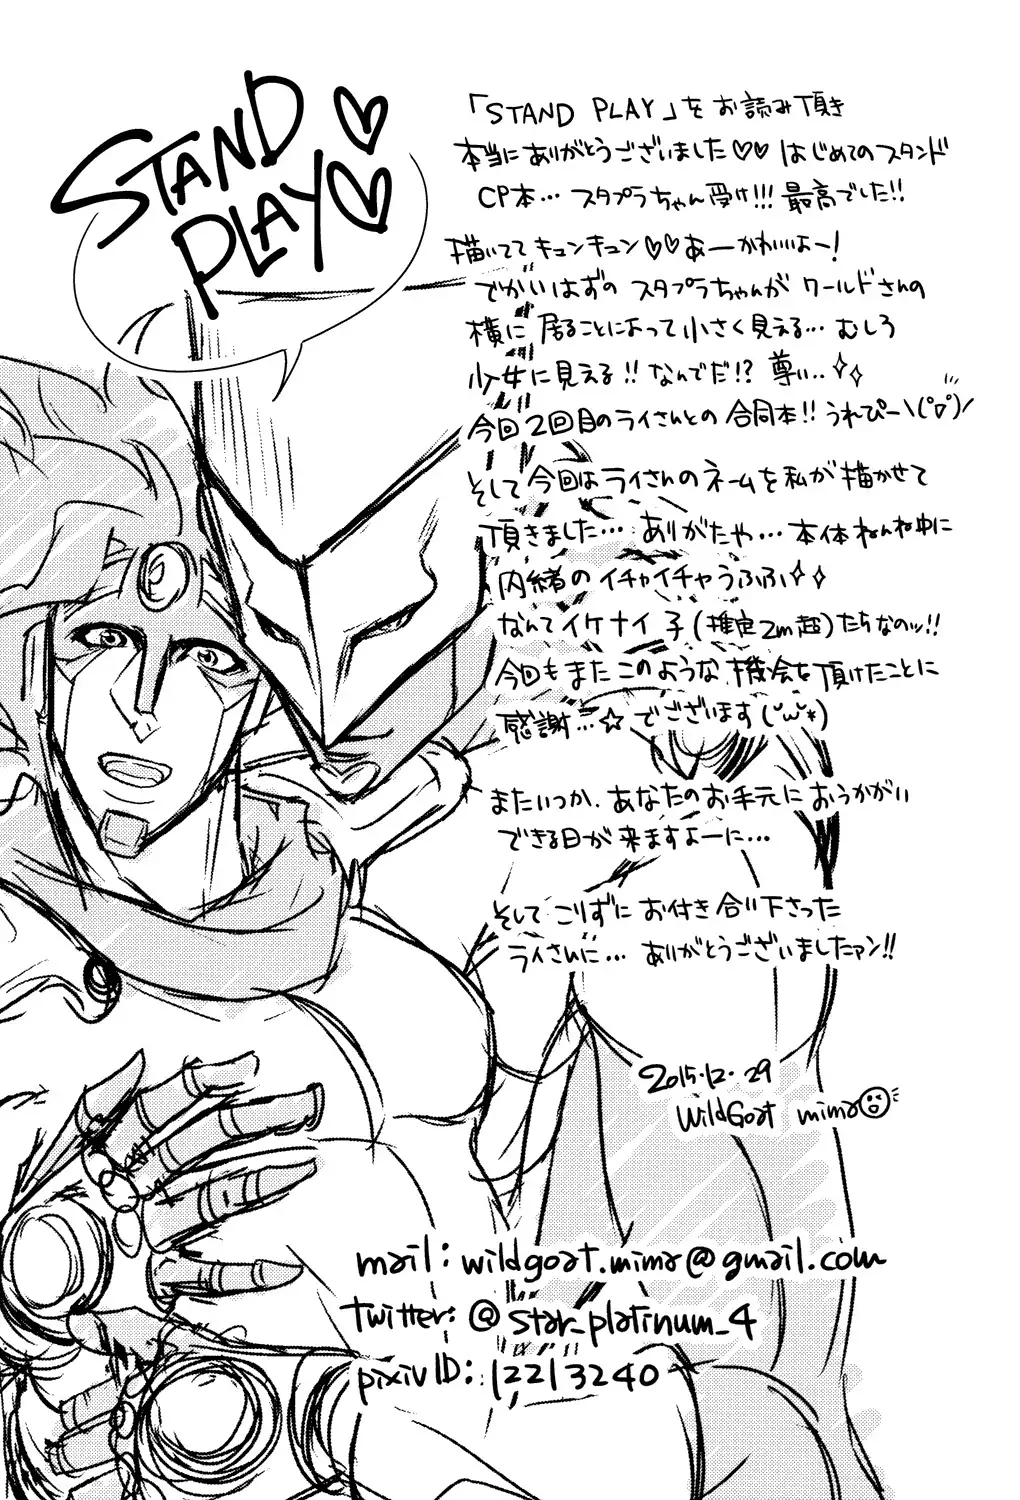 STAND
PLAY♡♡
「STAND PLAY」をお読み頂き
本当にありがとうございました♡♡ はじめてのスタンド
CP本… スタプラちゃん受け!!! 最高でした!!
描いてて キュンキュン♡♡あーかわいいよー!
でかいはずの スタプラちゃんが ワールドさんの
横に 居ることによって小さく見える… むしろ
少女に見える!! なんでだ!? 尊い..✧✧
今回2回目のライさんとの 合同本!! うれぴー\(°▽°)/
そして今回はライさんのネームを私が描かせて
頂きました… ありがたや… 本体ねんね中に
内緒の イチャイチャうふふ✧✧
なんてイケナイ 子(推定2m超)たちなのッ!!
今回もまた このような 機会を頂けたことに
感謝…☆ でございます(˘ω˘*)
またいつか、あなたのお手元に おうかがい
できる日が 来ますよーに…
そして こりずに お付き合い下さった
ライさんに… ありがとうございましたァン!!
2015.12.29
WildGoat mima
mail: wildgoat.mima@gmail.com
twitter: @star_platinum_4
pixivID: 12213240